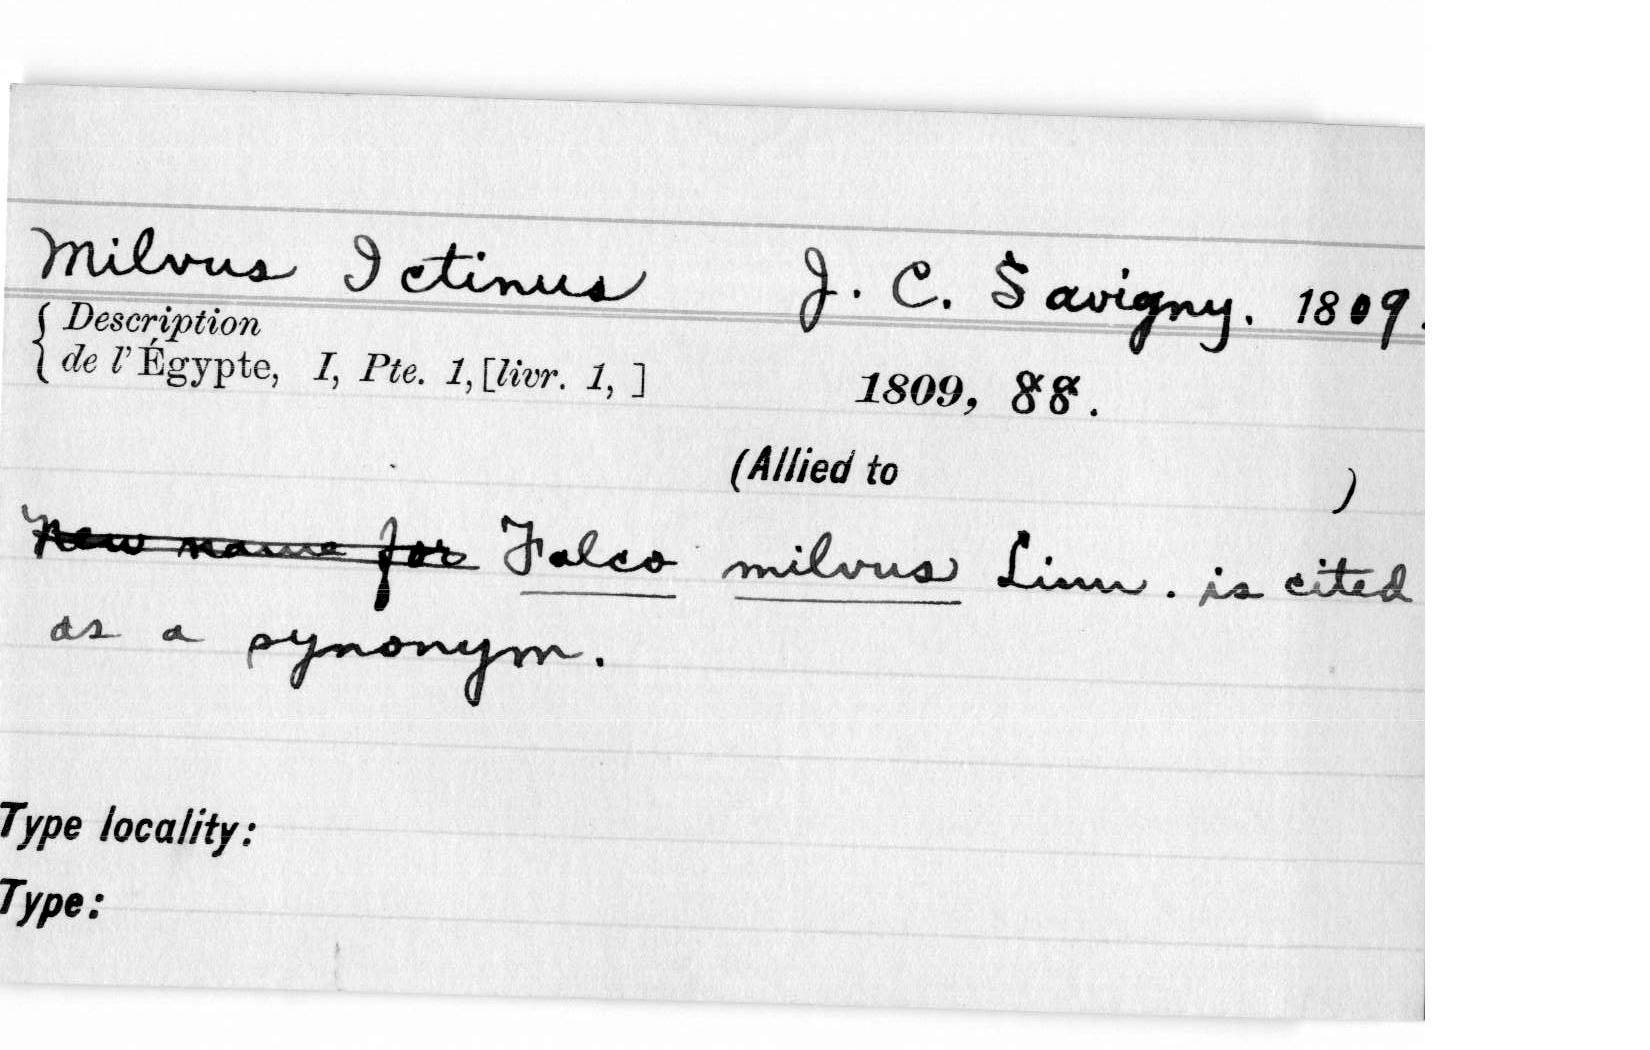 Milvus Ictinus J. C. Savigny. 1809.
{ Description
de l'Égypte, I, Pte. 1, [livr. 1, ] 1809, 88.
(Allied to )
New name for Falco milvus Linn. is cited
as a synonym.
Type locality:
Type: